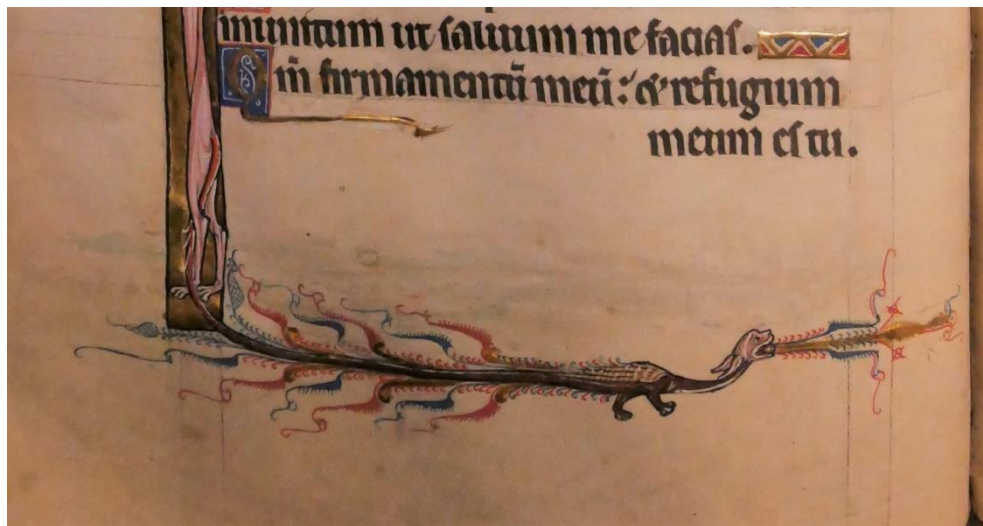 munitum ut saluum me facias.
Qm̄ firmamentū meū: & refugium
meum es tu.